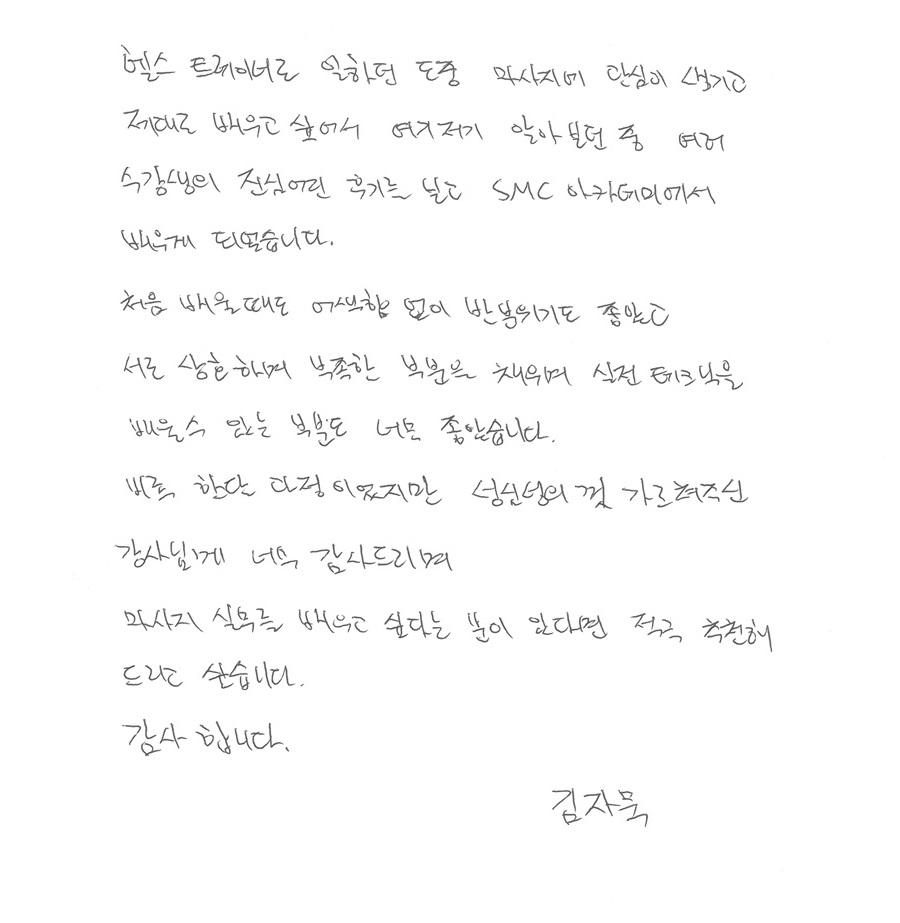 헬스 트레이너로 일하던 도중 마사지에 관심이 생기고
제대로 배우고 싶어서 여기저기 알아보던 중 여러
수강생의 진심어린 후기를 보고 SMC 아카데미에서
배우게 되었습니다.
처음 배울때도 어색함 없이 반분위기도 좋았고
서로 상호하며 부족한 부분을 채우며 실전 테크닉을
배울수 있는 부분도 너무 좋았습니다.
비록 한달 과정이었지만 성심성의 껏 가르쳐주신
강사님께 너무 감사드리며
마사지 실무를 배우고 싶다는 분이 있다면 적극 추천해
드리고 싶습니다.
감사 합니다.
김자묵